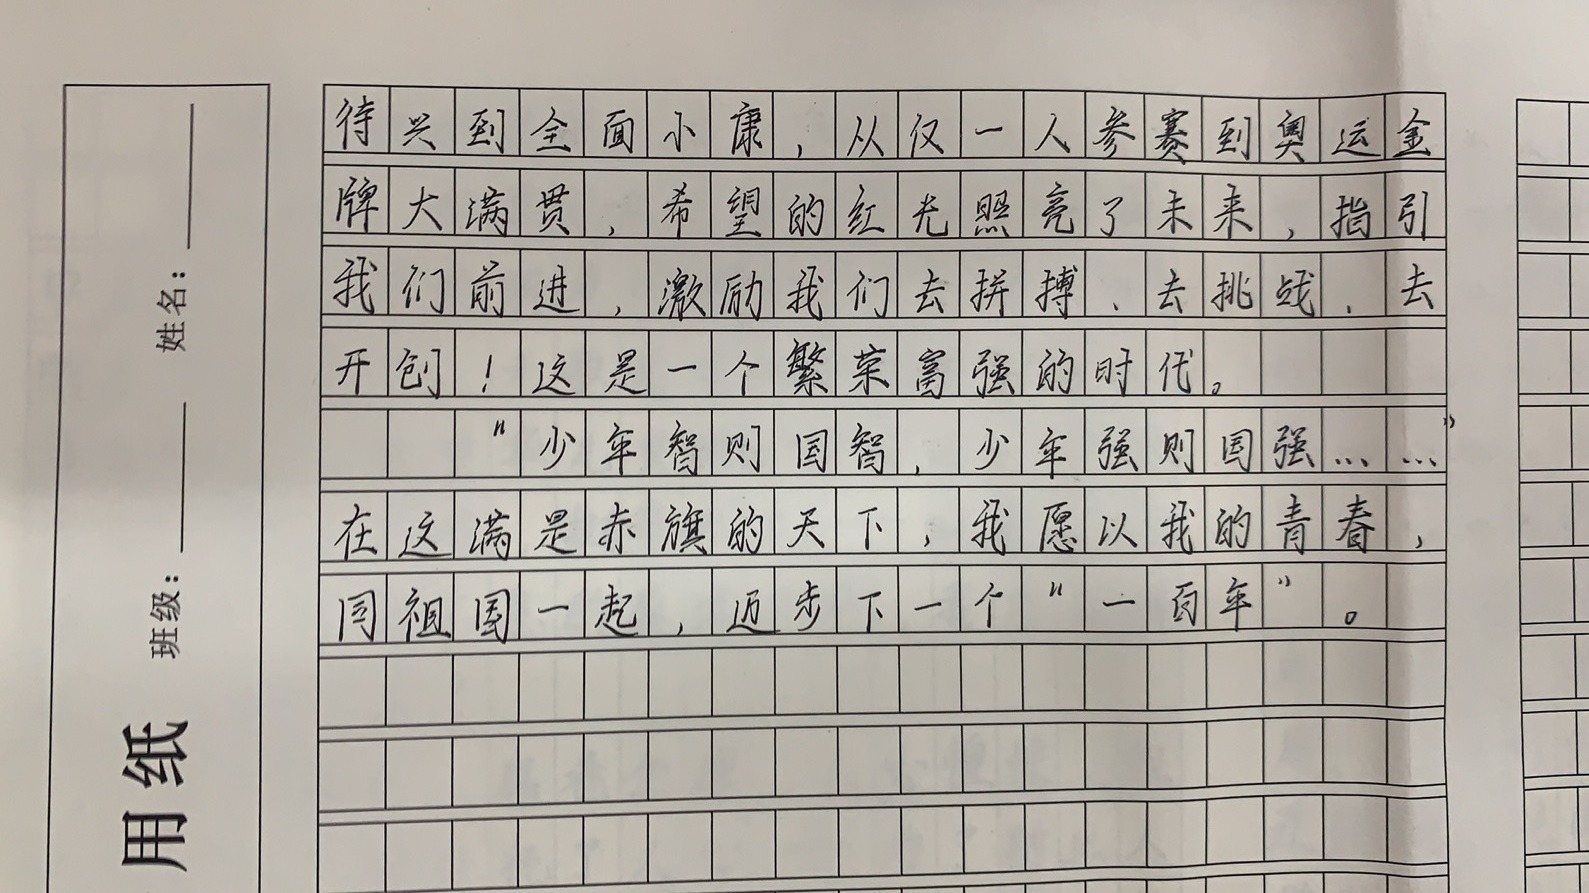 待兴到全面小康，从仅一人参赛到奥运金
牌大满贯，希望的红光照亮了未来，指引
我们前进，激励我们去拼搏、去挑战、去
开创！这是一个繁荣富强的时代。
“少年智则国智，少年强则国强……”
在这满是赤旗的天下，我愿以我的青春，
同祖国一起，迈步下一个“一百年”。
用纸 班级： 姓名：